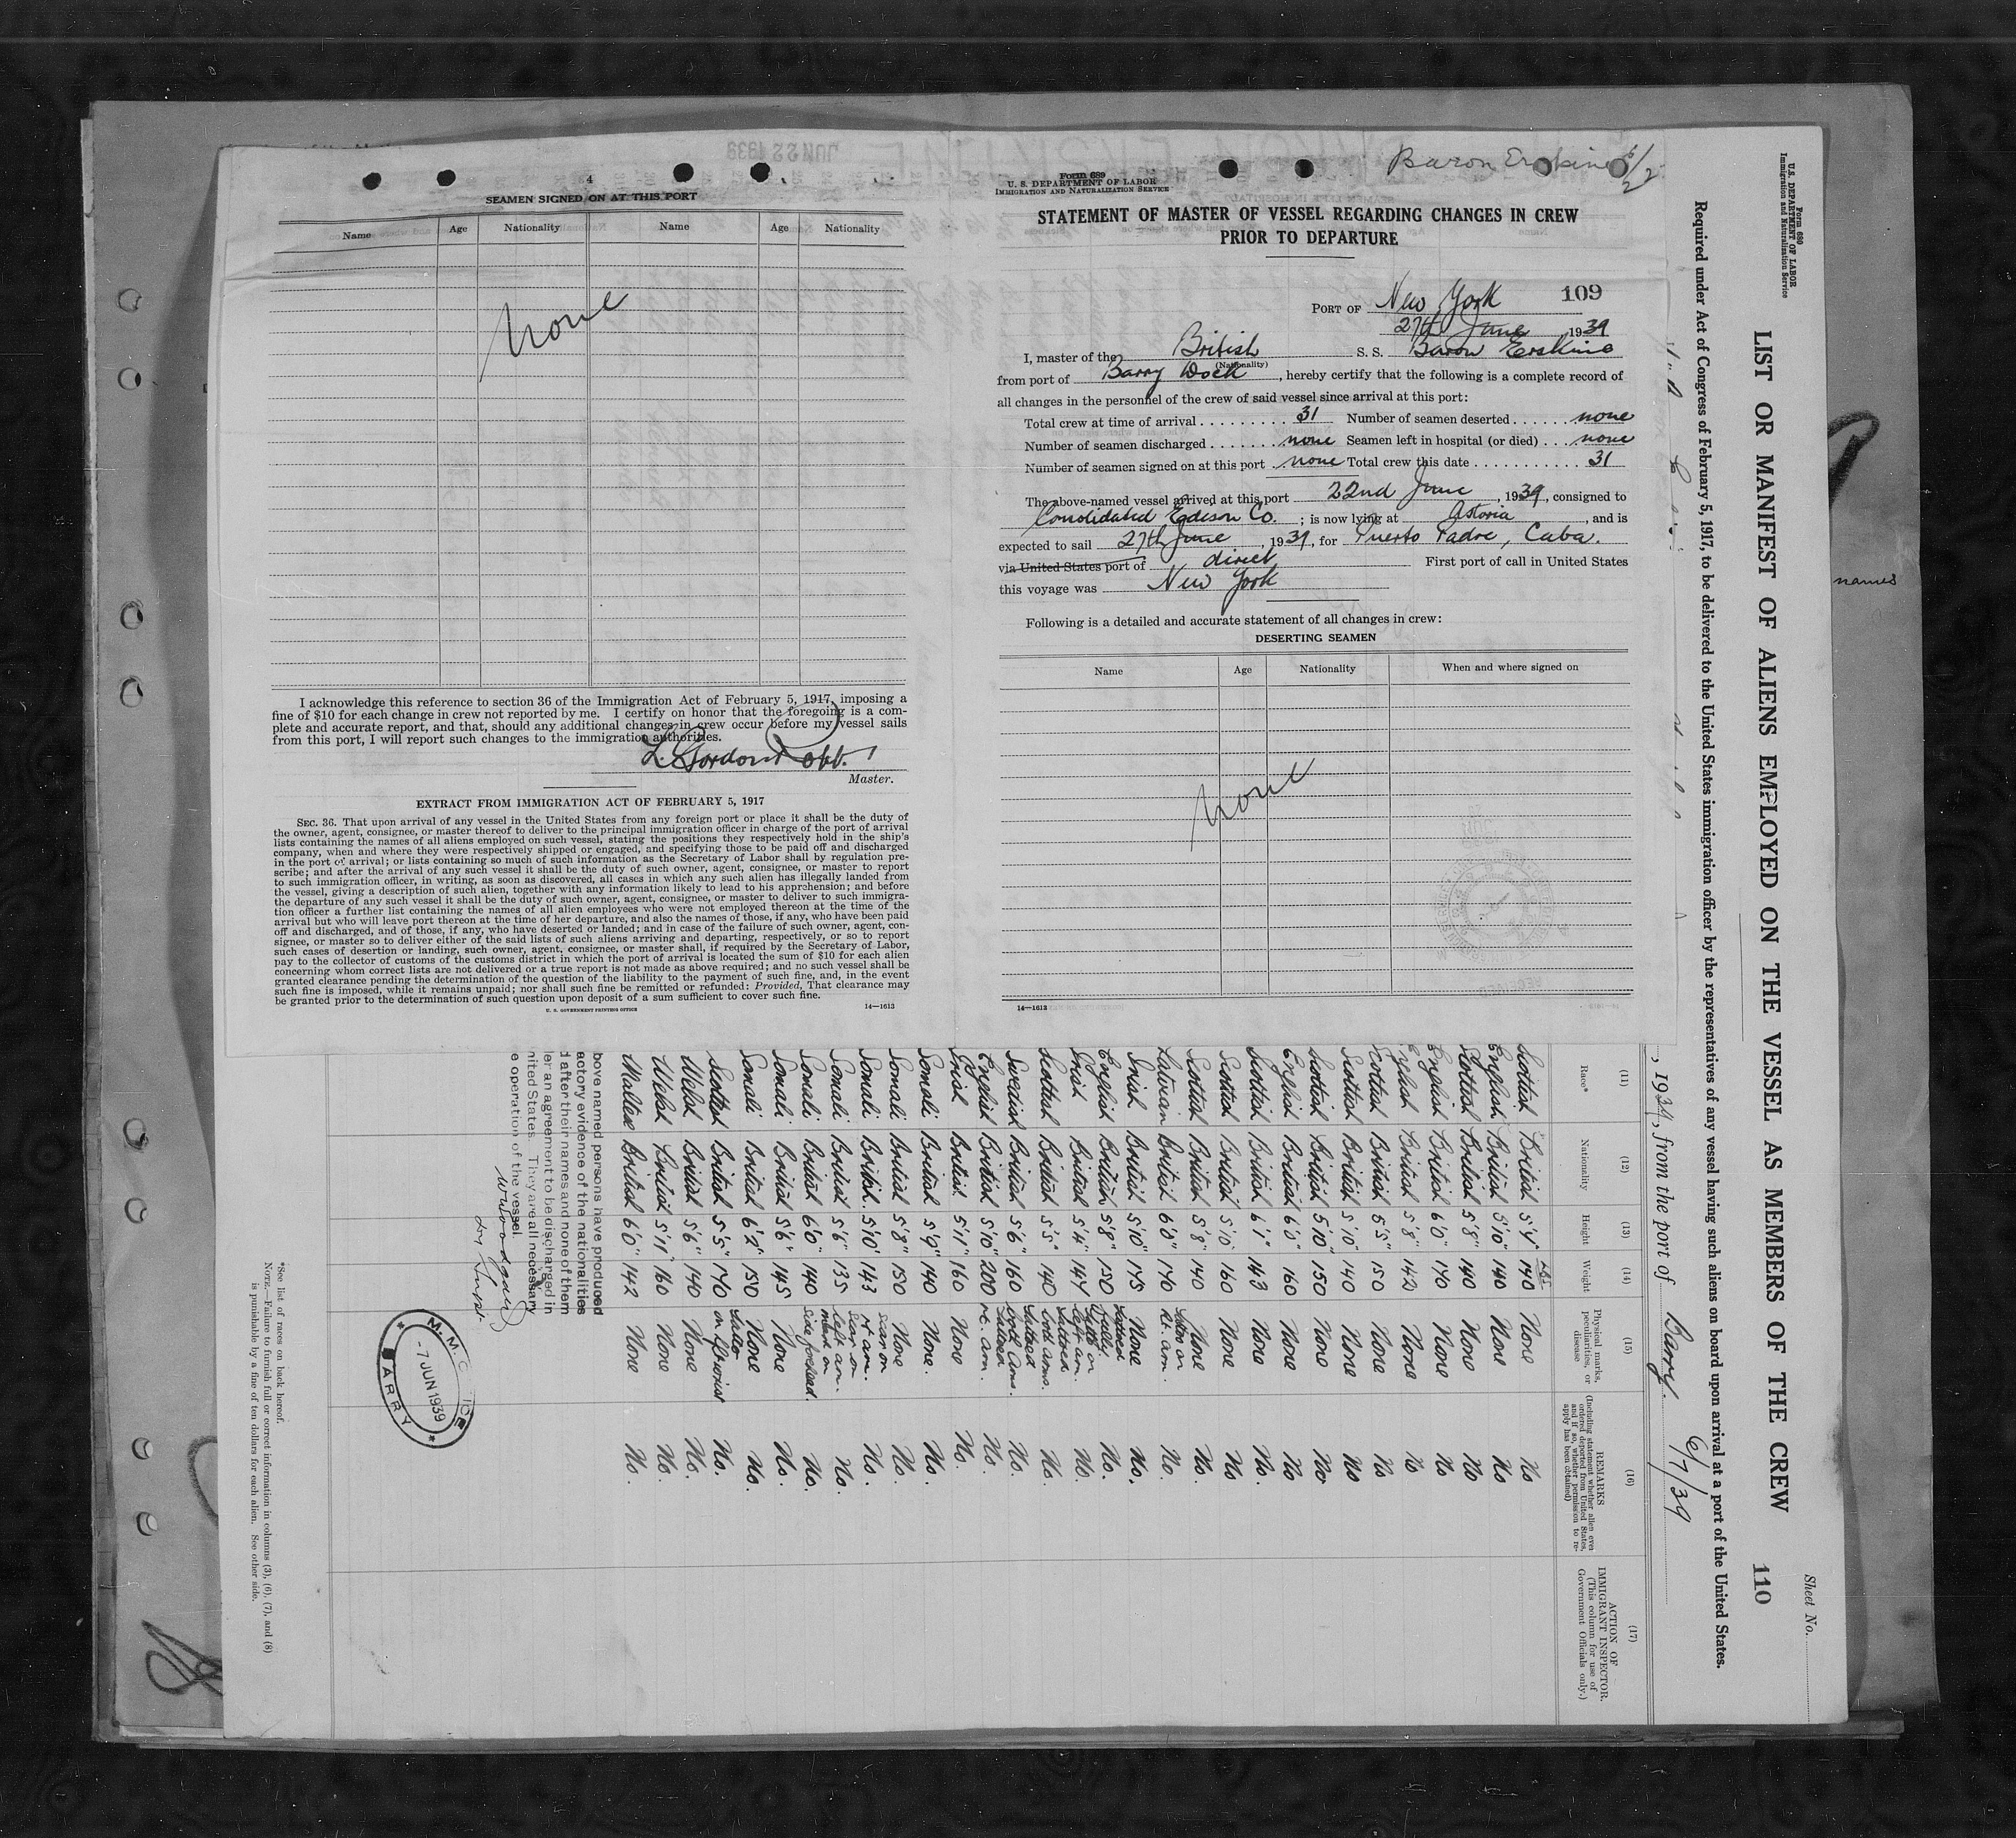 4
SEAMEN SIGNED ON AT THIS PORT
Name Age Nationality Name Age Nationality
None
I acknowledge this reference to section 36 of the Immigration Act of February 5, 1917, imposing a
fine of $10 for each change in crew not reported by me. I certify on honor that the foregoing is a com-
plete and accurate report, and that, should any additional changes in crew occur before my vessel sails
from this port, I will report such changes to the immigration authorities.
L. Gordon Robb.
Master.
EXTRACT FROM IMMIGRATION ACT OF FEBRUARY 5, 1917
SEC. 36. That upon arrival of any vessel in the United States from any foreign port or place it shall be the duty of
the owner, agent, consignee, or master thereof to deliver to the principal immigration officer in charge of the port of arrival
lists containing the names of all aliens employed on such vessel, stating the positions they respectively hold in the ship's
company, when and where they were respectively shipped or engaged, and specifying those to be paid off and discharged
in the port of arrival; or lists containing so much of such information as the Secretary of Labor shall by regulation pre-
scribe; and after the arrival of any such vessel it shall be the duty of such owner, agent, consignee, or master to report
to such immigration officer, in writing, as soon as discovered, all cases in which any such alien has illegally landed from
the vessel, giving a description of such alien, together with any information likely to lead to his apprehension; and before
the departure of any such vessel it shall be the duty of such owner, agent, consignee, or master to deliver to such immigra-
tion officer a further list containing the names of all alien employees who were not employed thereon at the time of the
arrival but who will leave port thereon at the time of her departure, and also the names of those, if any, who have been paid
off and discharged, and of those, if any, who have deserted or landed; and in case of the failure of such owner, agent, con-
signee, or master so to deliver either of the said lists of such aliens arriving and departing, respectively, or so to report
such cases of desertion or landing, such owner, agent, consignee, or master shall, if required by the Secretary of Labor,
pay to the collector of customs of the customs district in which the port of arrival is located the sum of $10 for each alien
concerning whom correct lists are not delivered or a true report is not made as above required; and no such vessel shall be
granted clearance pending the determination of the question of the liability to the payment of such fine, and, in the event
such fine is imposed, while it remains unpaid; nor shall such fine be remitted or refunded: Provided, That clearance may
be granted prior to the determination of such question upon deposit of a sum sufficient to cover such fine.
U. S. GOVERNMENT PRINTING OFFICE 14—1613
Baron Erskine
Form 689
U. S. DEPARTMENT OF LABOR
IMMIGRATION AND NATURALIZATION SERVICE
STATEMENT OF MASTER OF VESSEL REGARDING CHANGES IN CREW
PRIOR TO DEPARTURE
109
PORT OF New York
27th June 1939
I, master of the British S. S. Baron Erskine
(Nationality)
from port of Barry Dock, hereby certify that the following is a complete record of
all changes in the personnel of the crew of said vessel since arrival at this port:
Total crew at time of arrival 31 Number of seamen deserted none
Number of seamen discharged none Seamen left in hospital (or died) none
Number of seamen signed on at this port none Total crew this date 31
The above-named vessel arrived at this port 22nd June, 1939, consigned to
Consolidated Edison Co.; is now lying at Astoria, and is
expected to sail 27th June, 1939, for Puerto Padre, Cuba.
via United States port of direct First port of call in United States
this voyage was New York
Following is a detailed and accurate statement of all changes in crew:
DESERTING SEAMEN
Name Age Nationality When and where signed on
None
14—1613
Form 680
U.S. DEPARTMENT OF LABOR
Immigration and Naturalization Service
Sheet No.
LIST OR MANIFEST OF ALIENS EMPLOYED ON THE VESSEL AS MEMBERS OF THE CREW 110
Required under Act of Congress of February 5, 1917, to be delivered to the United States immigration officer by the representatives of any vessel having such aliens on board upon arrival at a port of the United States.
, 1939, from the port of Barry. 6/7/39
(11) (12) (13) (14) (15) (16) (17)
Race* Nationality Height Weight Physical marks, peculiarities, or disease REMARKS (Including statement whether alien ever ordered deported from United States, and if so, whether permission to re-apply has been obtained) ACTION OF IMMIGRANT INSPECTOR. (This column for use of Government Officials only.)
Scottish British 5'4" 140 None No
English British 5'10" 140 None No
Scottish British 5'8" 140 None No
English British 6'0" 170 None No
English British 5'8" 142 None No
Scottish British 5'5" 150 None No
Scottish British 5'10" 140 None No
Scottish British 5'10" 150 None No
English British 6'0" 160 None No
Scottish British 6'1" 143 None No.
Scottish British 5'10 160 None No
Scottish British 5'8" 140 None No.
Latvian British 6'0" 170 Tattoo on Rt. arm. No.
Irish British 5'10" 175 None No.
English British 5'8" 150 No.
Irish British 5'4" 147 left arm. No.
Scottish British 5'5" 140 Tattooed both arms. No.
Swedish British 5'6" 160 Tattooed both arms. No.
English British 5'10" 200 Tattooed rt. arm. No.
Irish British 5'11" 160 None No.
Somali British 5'9" 140 None. No.
Somali British 5'8" 150 None No
Somali British 5'10" 143 scar on rt arm. No.
Somali British 5'6" 135 Scar on left arm. No.
Somali British 6'0" 140 mark on side forehead. No.
Somali British 5'6" 145 None No.
Somali British 6'2" 150 None No.
Scottish British 5'5" 170 Tattoo on left No.
Welsh British 5'6" 140 None No.
Welsh British 5'11" 160 None No.
Maltese British 6'0" 142 None No.
bove named persons have produced
actory evidence of the nationalities
d after their names and none of them
er an agreement to be discharged in
nited States. They are all necessary
e operation of the vessel.
M. M. O
ICE
-7 JUN 1939
* BARRY *
*See list of races on back hereof.
NOTE.—Failure to furnish full or correct information in columns (3), (6), (7), and (8)
is punishable by a fine of ten dollars for each alien. See other side.
names
JUN 22 1939